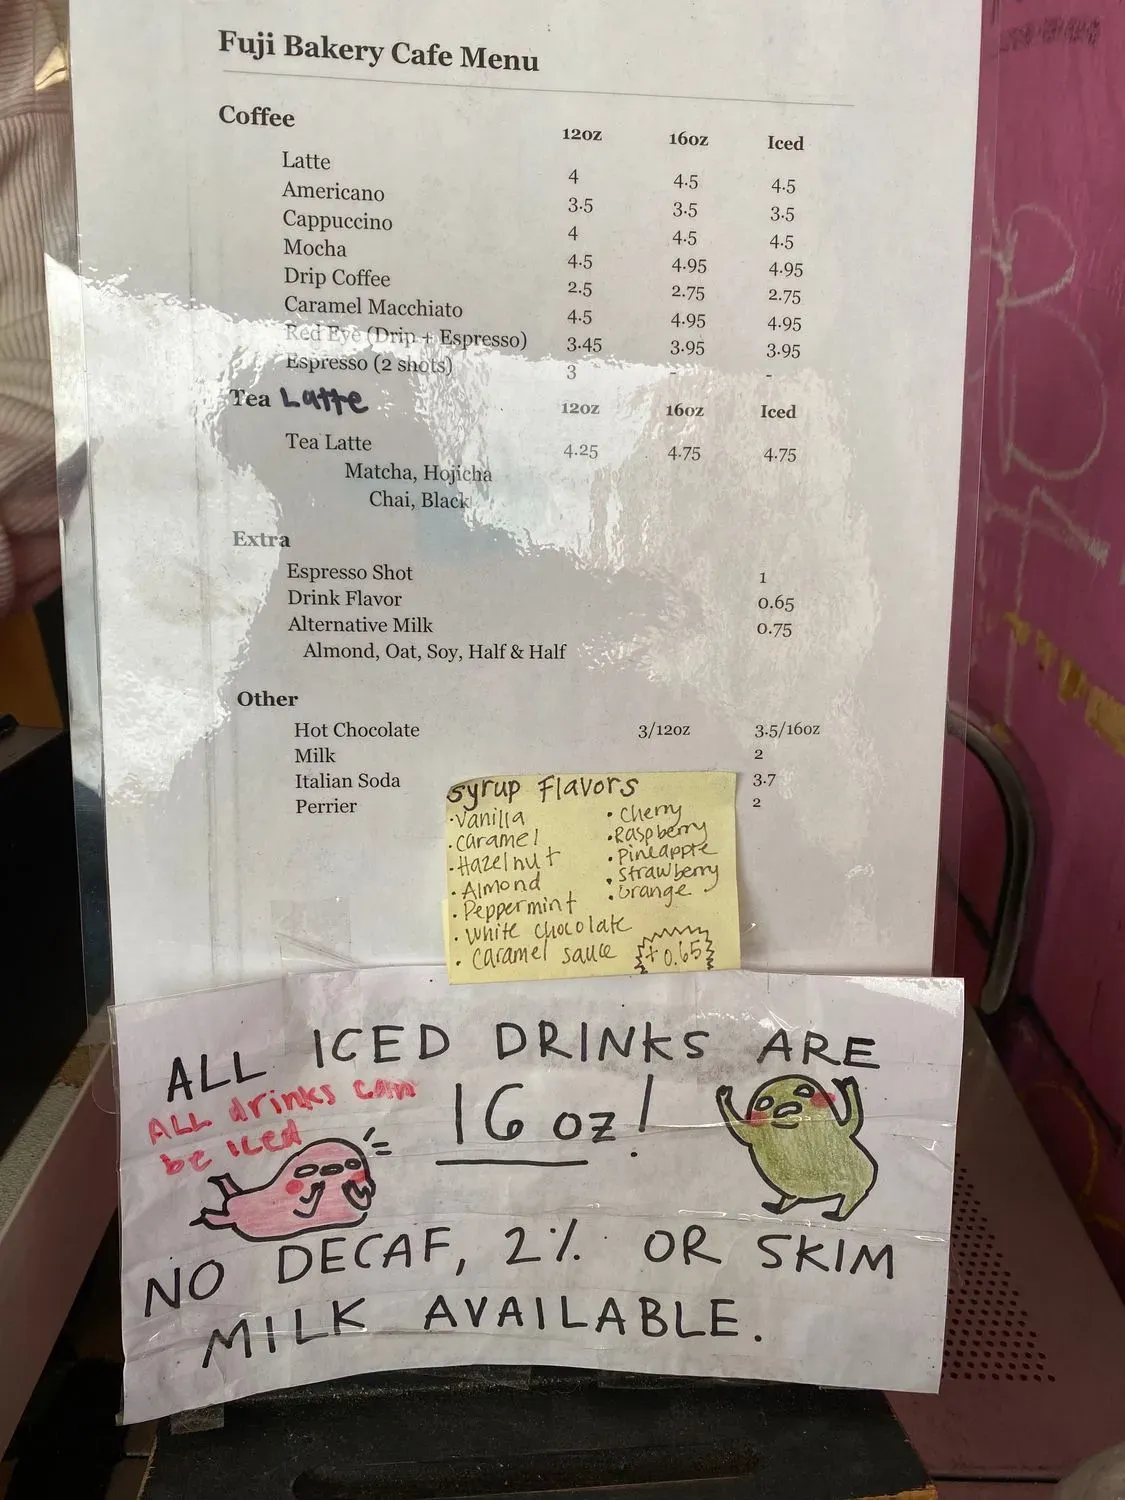 Fuji Bakery Cafe Menu
Coffee 12oz 16oz Iced
Latte 4 4.5 4.5
Americano 3.5 3.5 3.5
Cappuccino 4 4.5 4.5
Mocha 4.5 4.95 4.95
Drip Coffee 2.5 2.75 2.75
Caramel Macchiato 4.5 4.95 4.95
Red Eye (Drip + Espresso) 3.45 3.95 3.95
Espresso (2 shots) 3 - -
Tea Latte 12oz 16oz Iced
Tea Latte 4.25 4.75 4.75
Matcha, Hojicha
Chai, Black
Extra
Espresso Shot 1
Drink Flavor 0.65
Alternative Milk 0.75
Almond, Oat, Soy, Half & Half
Other
Hot Chocolate 3/12oz 3.5/16oz
Milk 2
Italian Soda 3.7
Perrier 2
Syrup Flavors
• Vanilla • Cherry
• Caramel • Raspberry
• Hazelnut • Pineapple
• Almond • Strawberry
• Peppermint • Orange
• White chocolate
• Caramel sauce +0.65
ALL ICED DRINKS ARE
16 oz!
ALL drinks can
be iced
NO DECAF, 2% OR SKIM
MILK AVAILABLE.